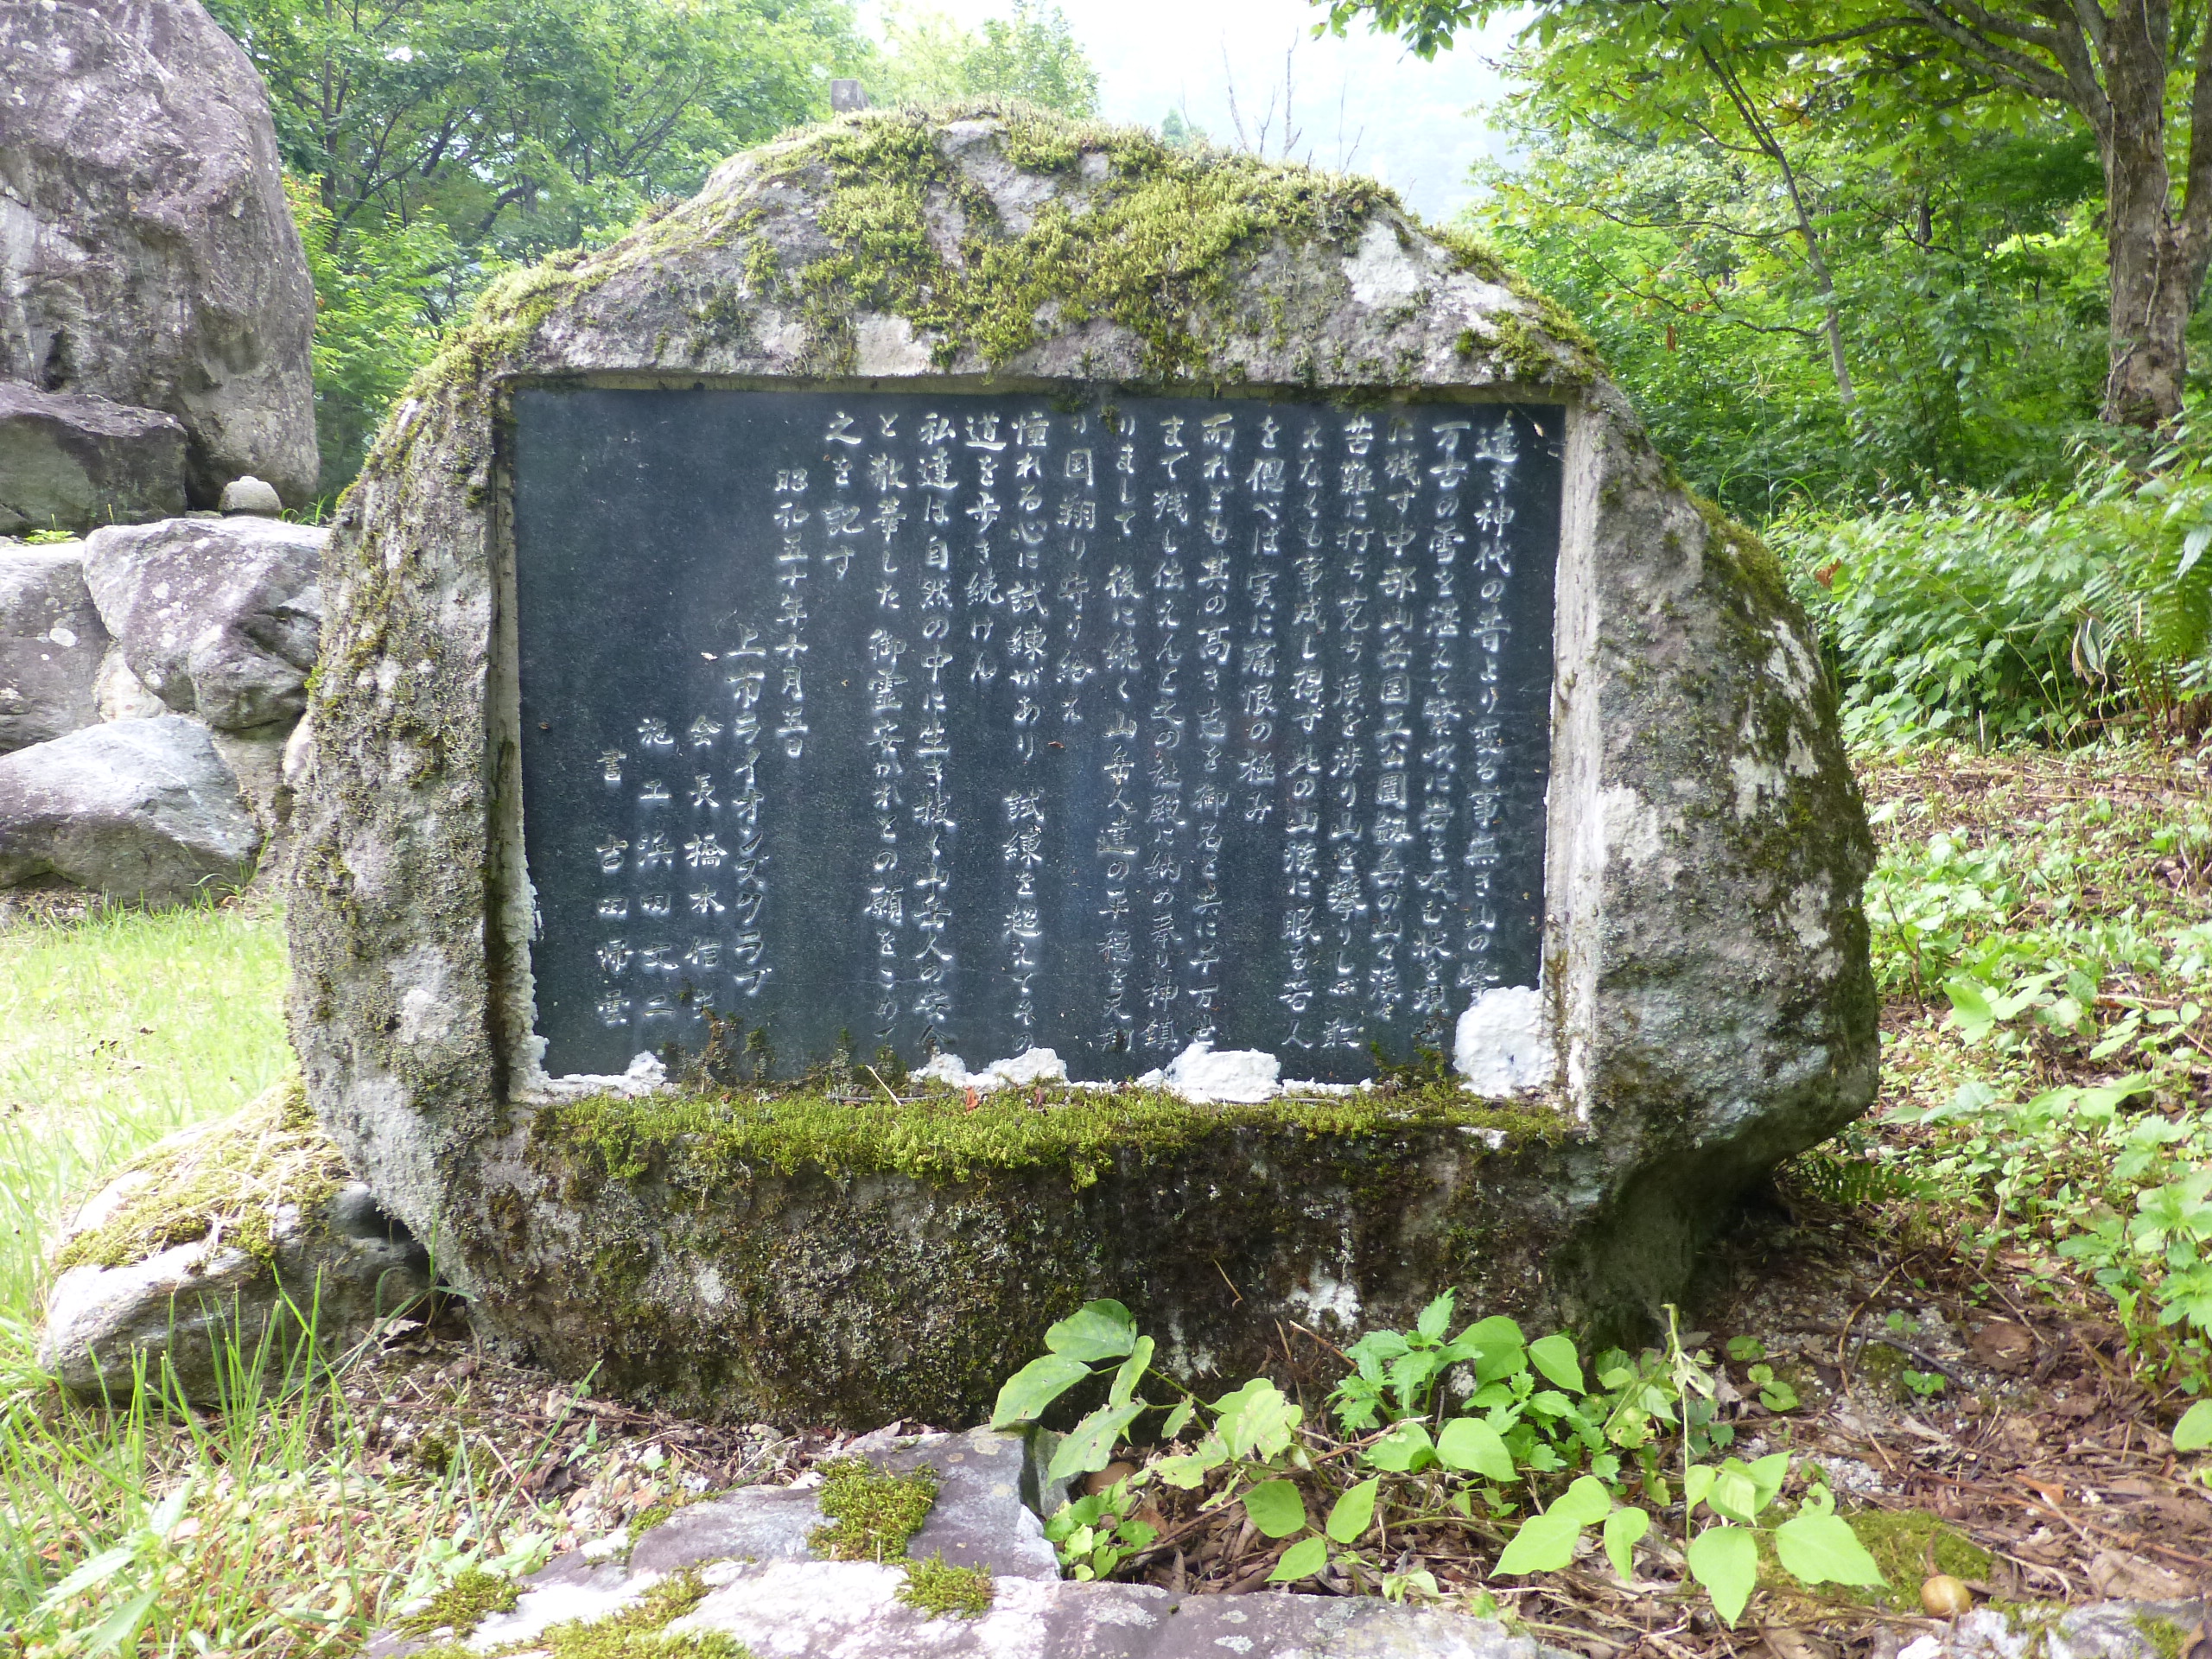 遠き神代の昔より変る事無き山の峰
万古の雪を湛えて
に残す中部山岳国立公園劔岳の山々渓々
苦難に打ち克ち渓を渉り山を攀りしが
えなくも事成し得ず此の山渓に眠る若人
を偲べは実に痛恨の極み
而れども其の高き志を御名と共に千万世
まで残し伝えんと之の社殿に納め奉り神鎮
りまして 後に続く山岳人達の平穏を
り国翔り守り給え
憧れる心に試練があり 試練を超えてその
道を歩き続けん
私達は自然の中に生き抜く山岳人の安全
と散華した 御霊安かれとの願をこめて
之を記す
昭和五十年十月五日
上市ライオンズクラブ
会長 橋本信
施工 浜田文二
書 吉田帰雲